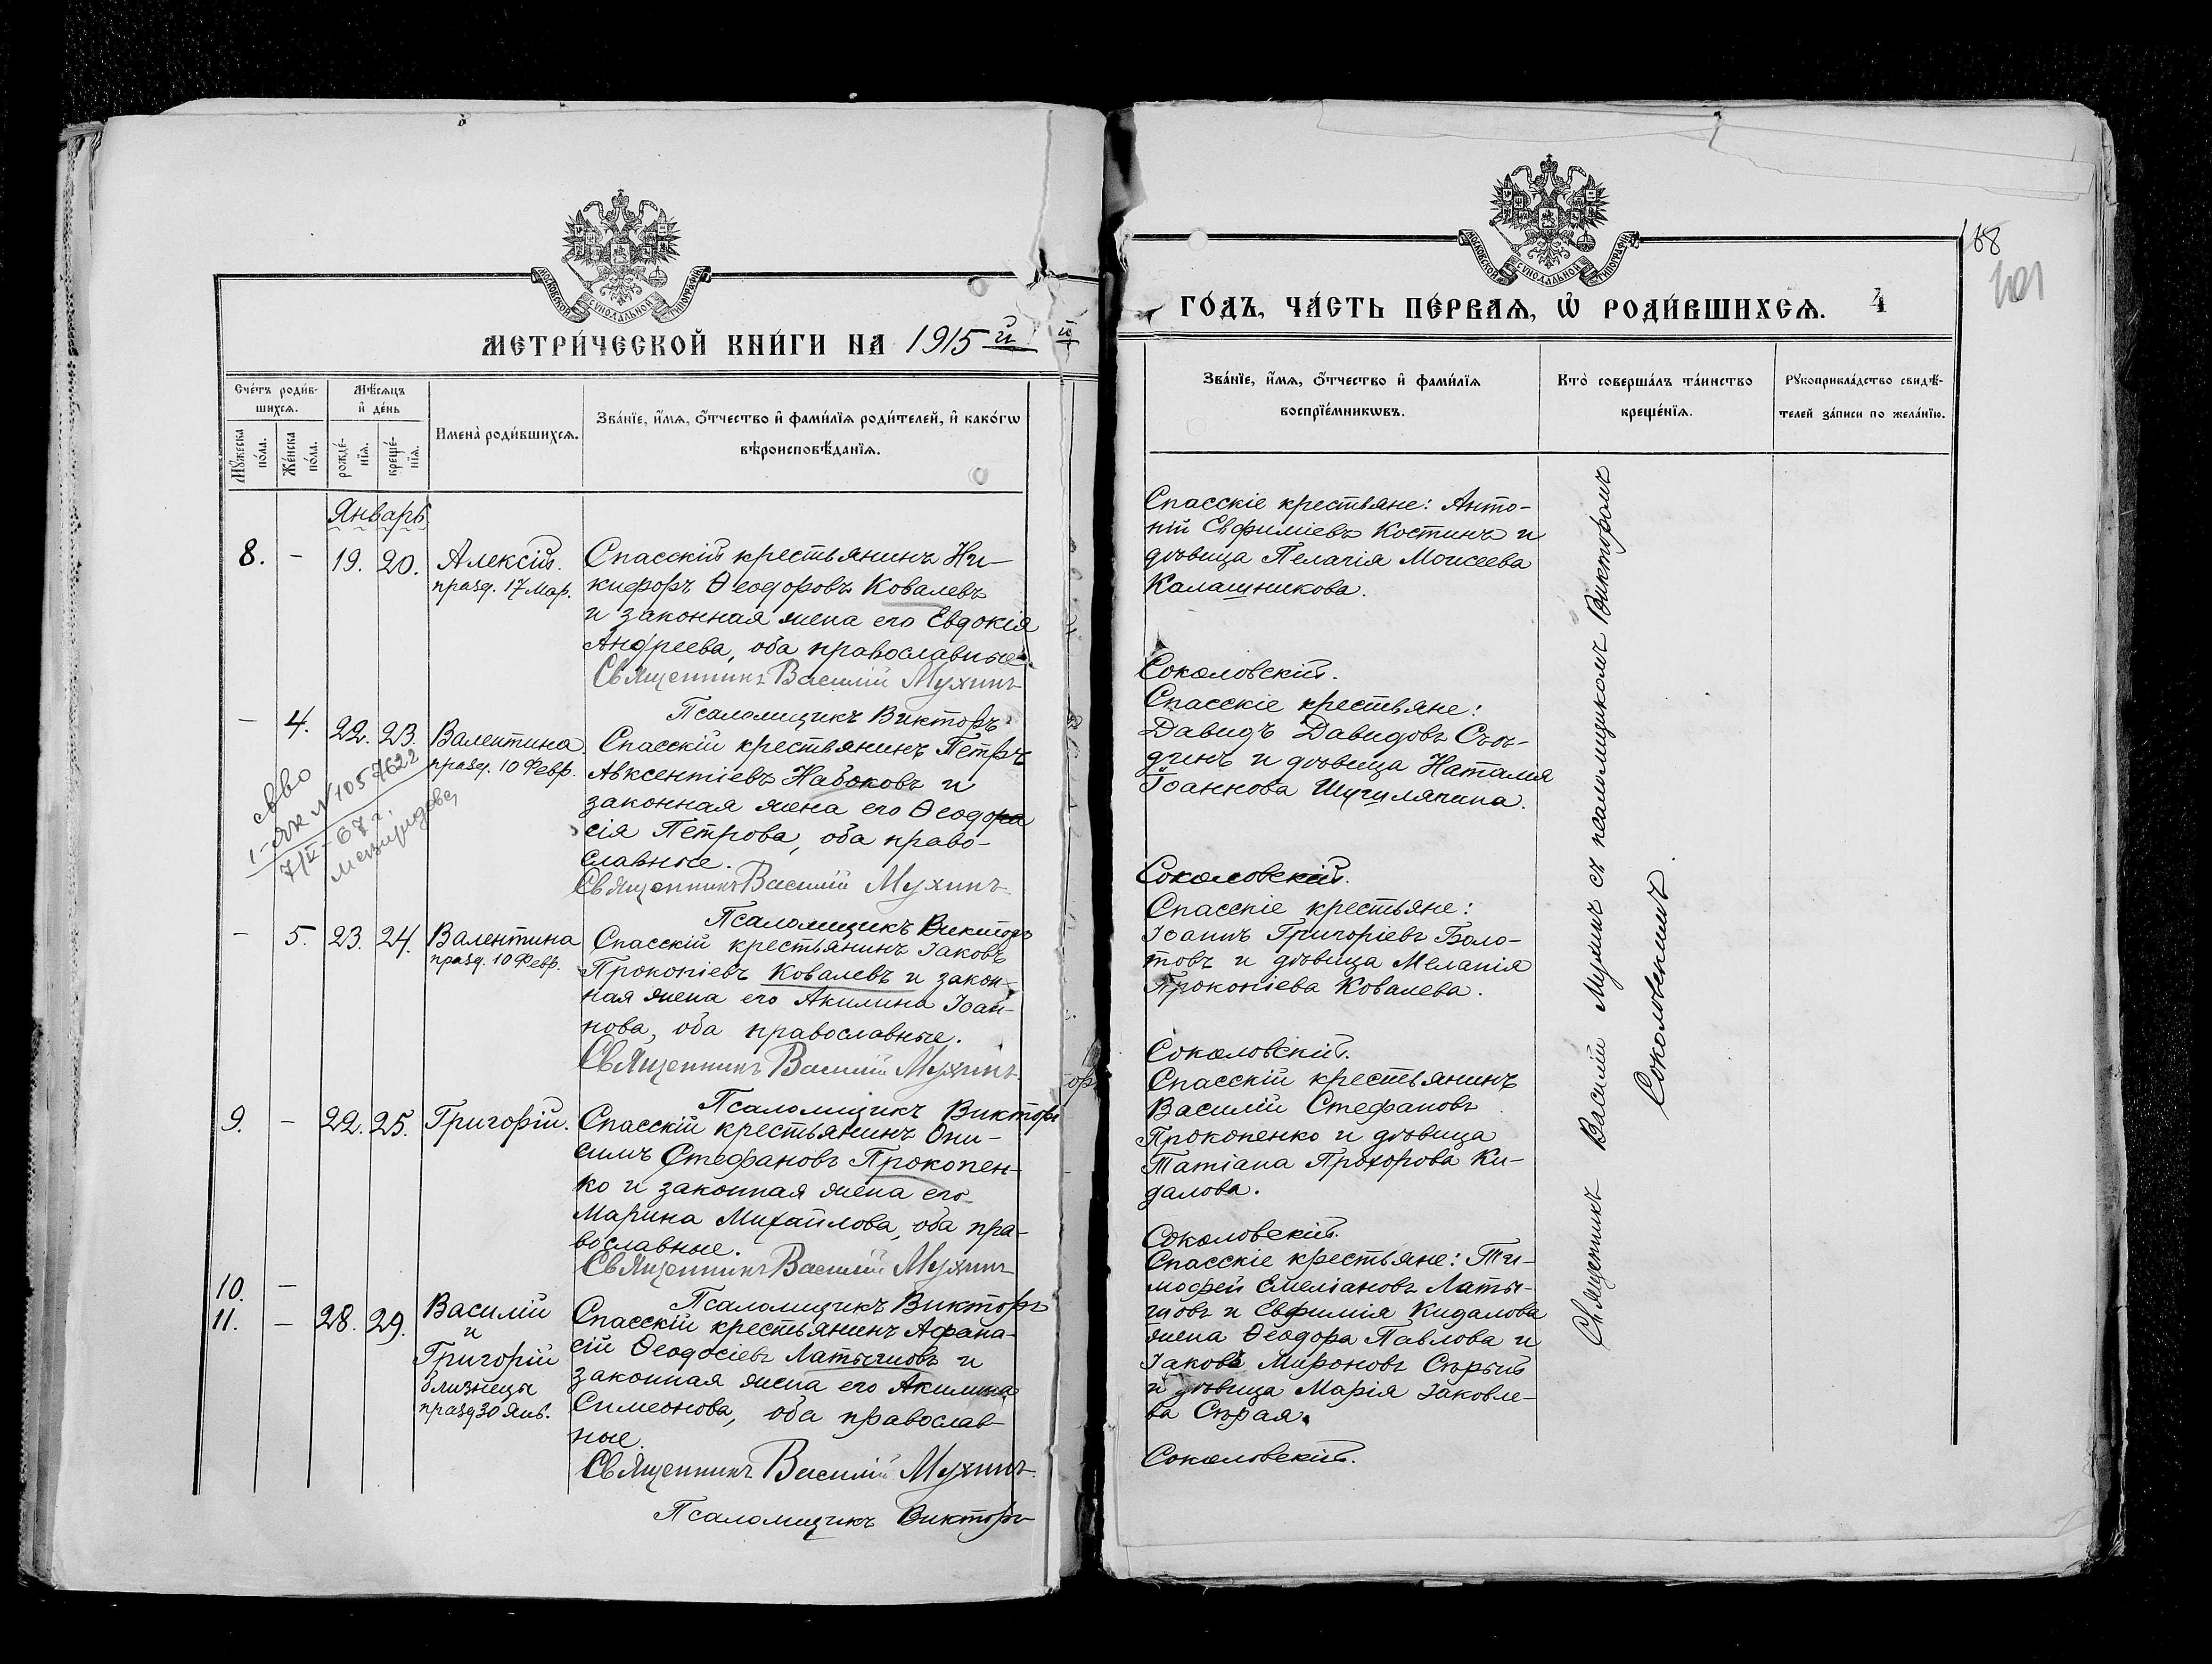 МОСКОВСКОЙ СѴНОДАЛЬНОЙ ТИПОГРАФІИ
МЕТРИ́ЧЕСКОЙ КНИ́ГИ НА 1915 й
Сче́тъ роди́в-
шихсѧ.
Мѣ́сѧцъ
и҆ де́нь
Мꙋ́жеска
по́ла.
Же́нска
по́ла.
рожде́-
нїѧ.
креще́-
нїѧ.
Имена̀ роди́вшихсѧ.
Зва́нїе, и҆́мѧ, ѻ҆́тчество и҆ фами́лїѧ роди́телей, и҆ како́гѡ
вѣроисповѣ́данїѧ.
Январь
8. – 19. 20. Алексій.
празд. 17 Мар.
Спасскій крестьянинъ Ни-
кифоръ Ѳеодоровъ Ковалевъ
и законная жена его Евдокія
Андреева, оба православные.
Священникъ Василій Мухинъ
Псаломщикъ Викторъ
– 4. 22. 23. Валентина
празд. 10 Февр.
Спасскій крестьянинъ Петръ
Авксентіевъ Набоковъ и
законная жена его Ѳеодо
сія Петрова, оба право-
славные.
Священникъ Василій Мухинъ
Псаломщикъ Викторъ
с-во
1-ЯК № 1057622
7/V-67 г.
– 5. 23. 24. Валентина
празд. 10 Февр.
Спасскій крестьянинъ Іаковъ
Прокопіевъ Ковалевъ и закон-
ная жена его Акилина Іоан-
нова, оба православные.
Священникъ Василій Мухинъ
Псаломщикъ Викторъ
9. – 22. 25. Григорій.
Спасскій крестьянинъ Они-
симъ Стефановъ Прокопен-
ко и законная жена его
Марина Михайлова, оба пра-
вославные.
Священникъ Василій Мухинъ
Псаломщикъ Викторъ
10. –
11. – 28. 29. Василій
и
Григорій
близнецы
празд 30 Янв.
Спасскій крестьянинъ Афана-
сій Ѳеодосіевъ Латышовъ и
законная жена его Акилина
Симеонова, оба православ-
ные.
Священникъ Василій Мухинъ
Псаломщикъ Викторъ
МОСКОВСКОЙ СѴНОДАЛЬНОЙ ТИПОГРАФІИ
188
ГО́ДЪ, ЧА́СТЬ ПЕ́РВАѦ, Ѡ҆ РОДИ́ВШИХСѦ. 4
Зва́нїе, и҆́мѧ, ѻ҆́тчество и҆ фами́лїѧ
воспрїе́мникѡвъ.
Кто̀ соверша́лъ та́инство
креще́нїѧ.
Рꙋкоприкла́дство свидѣ́-
телей за́писи по жела́нїю.
Спасскіе крестьяне: Анто-
ній Евфиміевъ Костинъ и
дѣвица Пелагія Моисеева
Калашникова.
Соколовскій.
Спасскіе крестьяне:
Давидъ Давидовъ
и дѣвица Наталія
Іоаннова
Соколовскій.
Спасскіе крестьяне:
Іоаннъ Григоріевъ Боло-
товъ и дѣвица Меланія
Прокопіева Ковалева.
Соколовскій.
Спасскій крестьянинъ
Василій Стефановъ
Прокопенко и дѣвица
Татіана Прохорова Ки-
далова.
Соколовскій.
Спасскіе крестьяне: Ти-
мофей Емеліановъ Латы-
шовъ и Евфимія Кидалова
жена Ѳеодора Павлова и
Іаковъ Мироновъ Сѣрый
и дѣвица Марія Іаковле-
ва Сѣрая.
Соколовскій.
Священникъ Василій Мухинъ съ псаломщикомъ Викторомъ
Соколовскимъ.